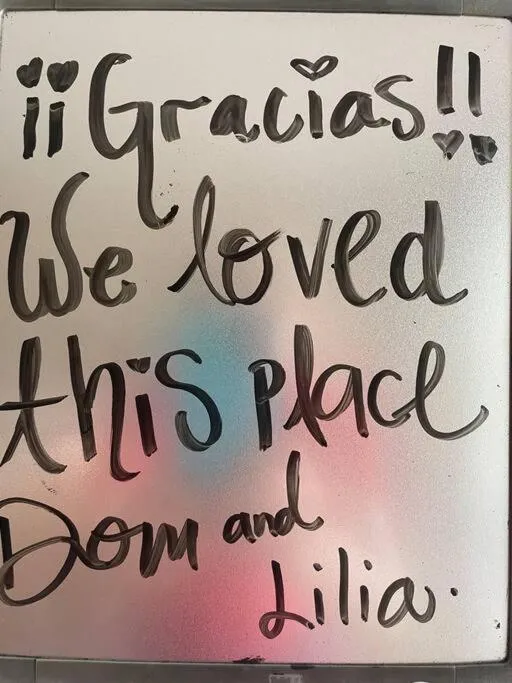 ¡¡Gracias!!
We loved
this place
Dom and
Lilia.